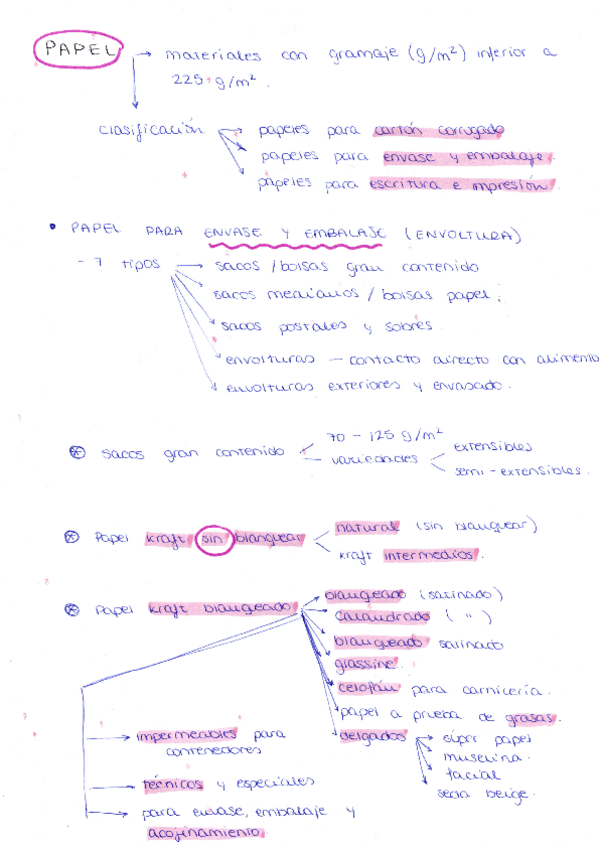 PAPEL → materiales con gramaje (g/m²) inferior a
225 g/m².
clasificación → papeles para cartón corrugado
papeles para envase y embalaje.
papeles para escritura e impresión.
• PAPEL PARA ENVASE Y EMBALAJE (ENVOLTURA)
- 7 tipos → sacos / bolsas gran contenido
sacos medianos / bolsas papel.
sacos postales y sobres.
envolturas — contacto directo con alimento
envolturas exteriores y envasado.
⊛ sacos gran contenido
70 - 125 g/m²
variedades
extensibles
semi-extensibles.
⊛ Papel kraft sin blanquear
natural (sin blanquear)
kraft intermedios.
⊛ Papel kraft blanqueado
blanqueado (satinado)
calandrado ( " )
blanqueado satinado
glassine.
celofán para carnicería.
papel a prueba de grasas.
delgados → súper papel
muselina.
facial
seda beige.
impermeables para
contenedores
técnicos y especiales
para envase, embalaje y
acojinamiento.